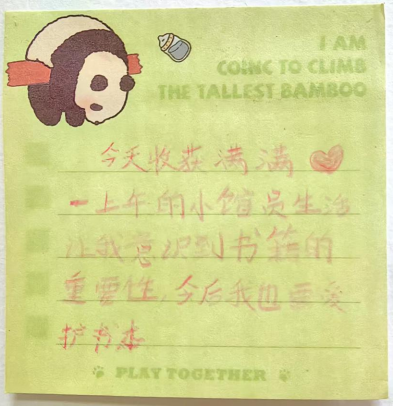 I AM
GOING TO CLIMB
THE TALLEST BAMBOO
今天收获满满
一上午的小馆员生活
让我意识到书籍的
重要性,今后我也要爱
护书本
PLAY TOGETHER